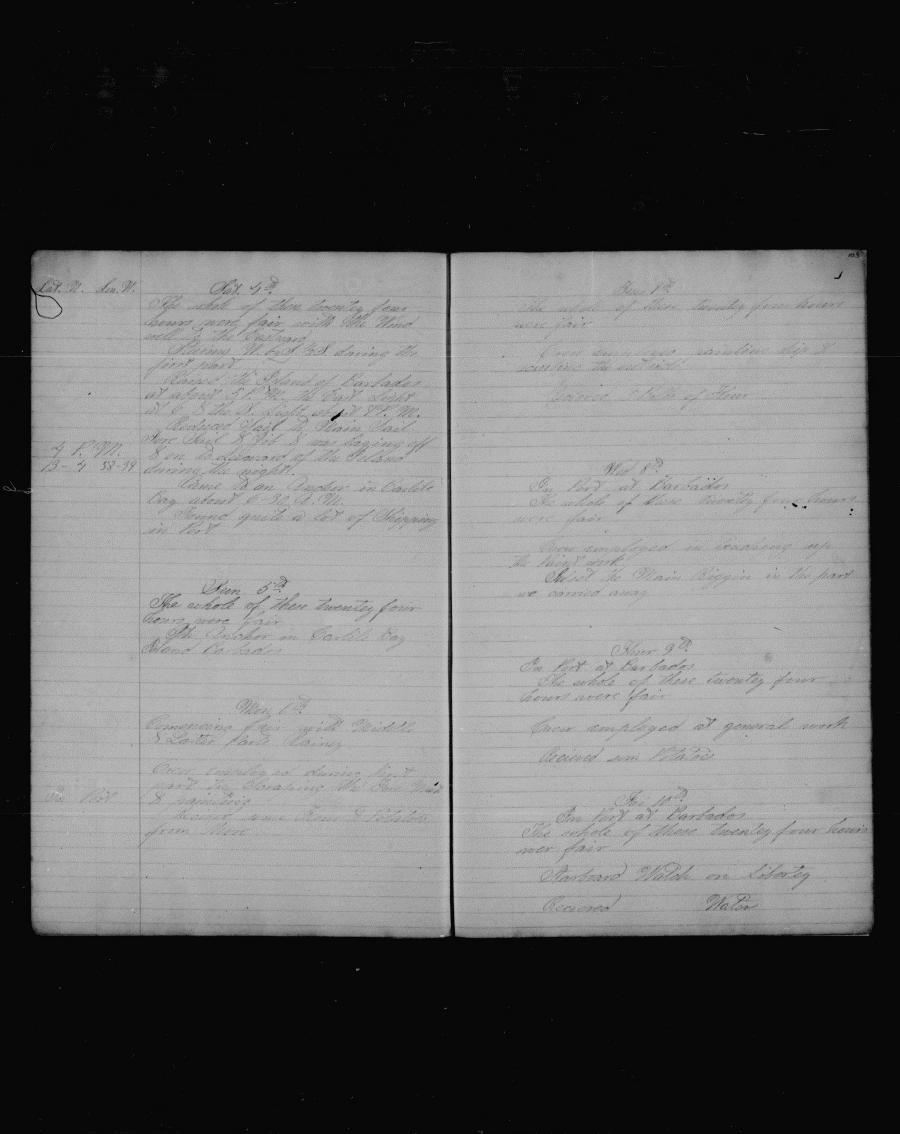 Lat. N. Lon. W.
Sat. 4th
The whole of these twenty four
hours were fair with the Wind
well to the Eastward
Steering W. by S ½ S. during the
first part
Raised the Island of Barbados
at about 3 P.M. the East Light
at 6 & the S. Light about 8 P.M.
Reduced Sail to Main Sail
Fore Sail & Jib & was laying off
4 P. M.
& on to Leeward of the Island
13-4 58-59
during the night.
Came to an Anchor in Carlile
bay about 6-30 A.M.
Found quite a lot of Shipping
in Port
Sun 5th
The whole of these twenty four
hours were fair
At Anchor in Carlile Bay
Island Barbados
Mon 6th
Comencing fair with Middle
& Later Parts Rainey
Crew employed during first
part in Scraping the Fore Mast
In Port
& painting
from Shore
103
Tues 7th
The whole of these twenty four hours
were fair
Crew painting ship &
the
of
Wed 8th
In Port at Barbados
The whole of these twenty four hours
were fair
Crew employed in touching up
the paint work
the Main Riggin in the part
we carried away
Thur 9th
In Port at Barbados
The whole of these twenty four
hours were fair
Crew employed at general work
Recieved sum Potatoes
Fri 10th
In Port at Barbados
The whole of these twenty four hours
wer fair
Starboard Watch on Liberty
Recieved Water